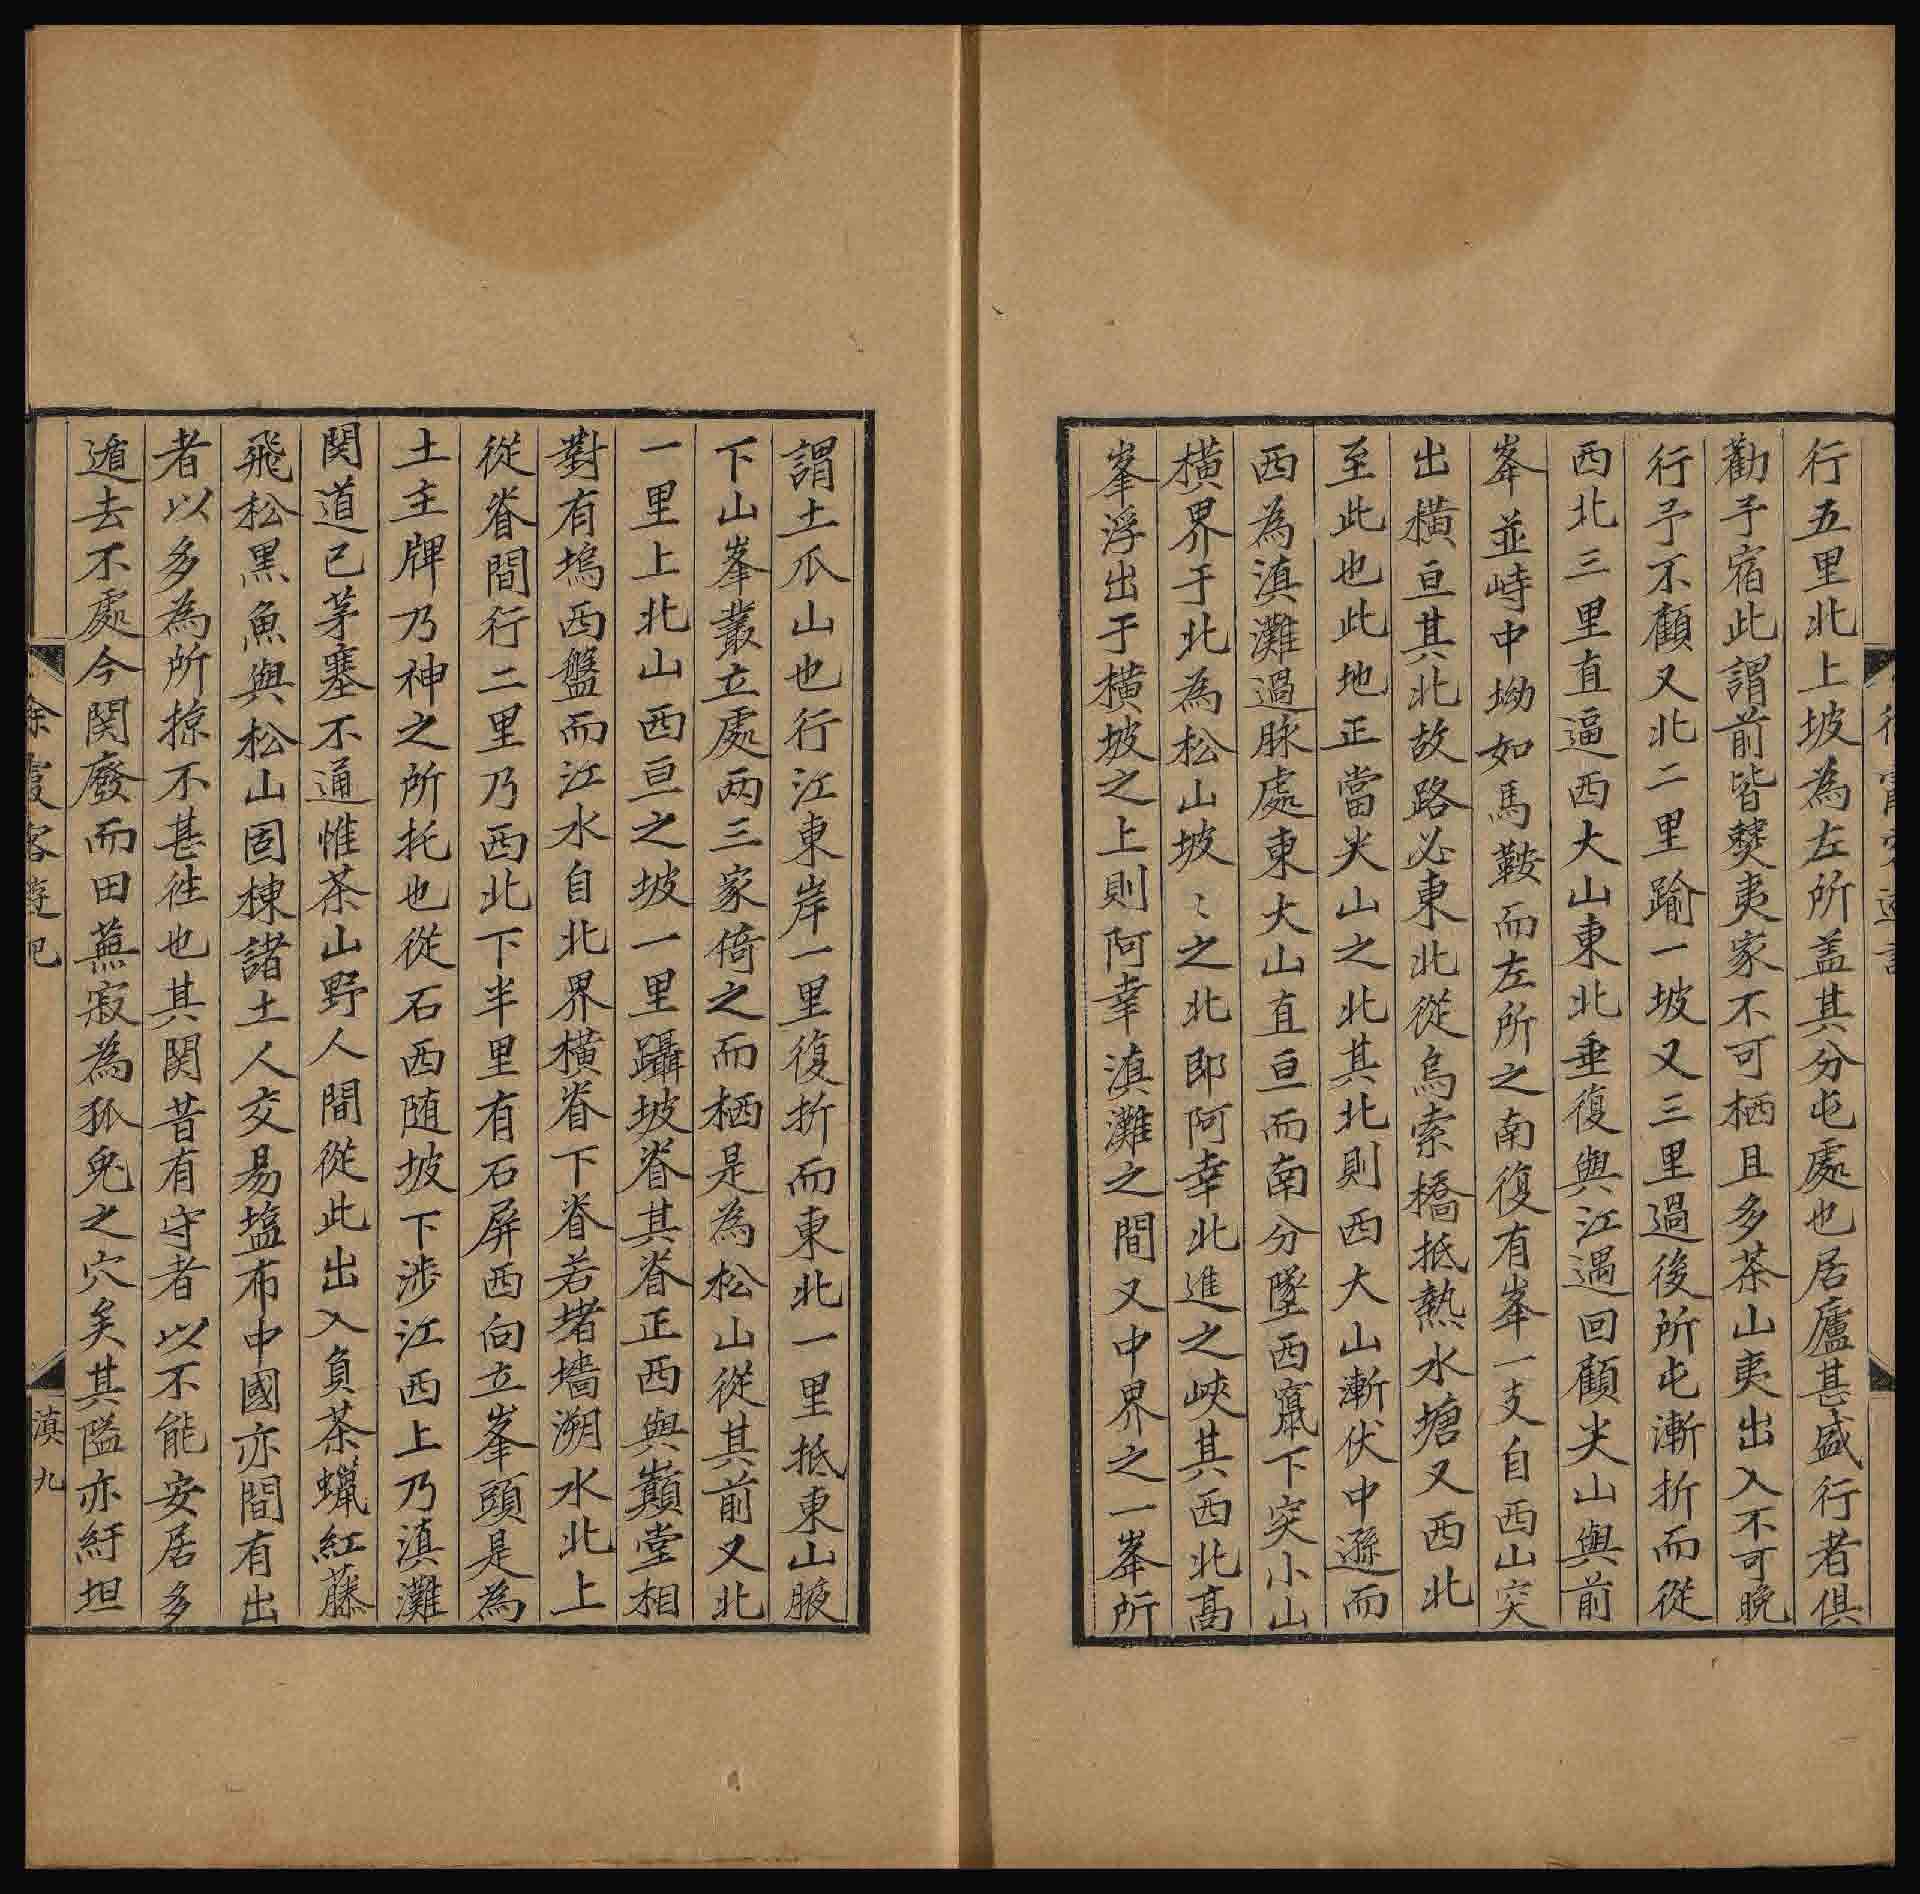 行五里北上坡為左所盖其分屯處也居廬甚盛行者俱
勸予宿此謂前皆僰夷家不可栖且多茶山夷出入不可晚
行予不顧又北二里踰一坡又三里過後所屯漸折而從
西北三里直逼西大山東北垂復與江遇回顧尖山與前
峯並峙中坳如馬鞍而左所之南復有峯一支自西山突
出橫亘其北故路必東北從烏索橋抵熱水塘又西北
至此也此地正當尖山之北其北則西大山漸伏中遜而
西為滇灘過脉處東大山直亘而南分墜西窩下突小山
橫界于北為松山坡〻之北即阿幸北進之峽其西北髙
峯浮出于橫坡之上則阿幸滇灘之間又中界之一峯所
謂土瓜山也行江東岸一里復折而東北一里抵東山腋
下山峯叢立處两三家倚之而栖是為松山從其前又北
一里上北山西亘之坡一里躡坡脊其脊正西與巔堂相
對有塢西盤而江水自北界橫脊下脊若堵墻溯水北上
從脊間行二里乃西北下半里有石屏西向立峯頭是為
土主牌乃神之所托也從石西随坡下涉江西上乃滇灘
関道已茅塞不通惟茶山野人間從此出入負茶蠟紅藤
飛松黑魚與松山固棟諸土人交易塩布中國亦間有出
者以多為所掠不甚徃也其関昔有守者以不能安居多
遁去不處今関廢而田蕪寂為狐兔之穴矣其隘亦紆坦
徐霞客遊記
滇九